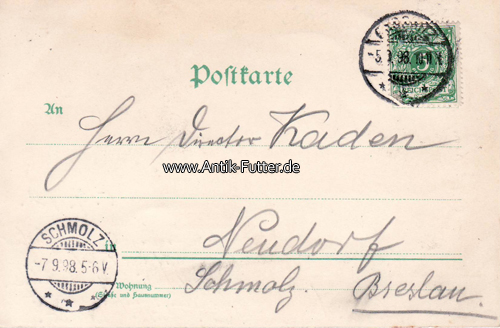 -5.9.98.10-11V.
Postkarte
An
Herrn Director Kaden
www.Antik-Futter.de
SCHMOLZ
-7.9.98.5-6V.
in
Neudorf
Schmolz. Breslau.
Wohnung
(Straße und Hausnummer)